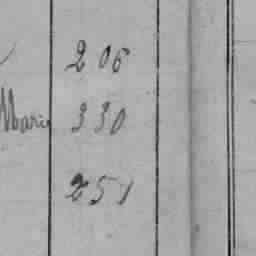 206
Marie 330
251